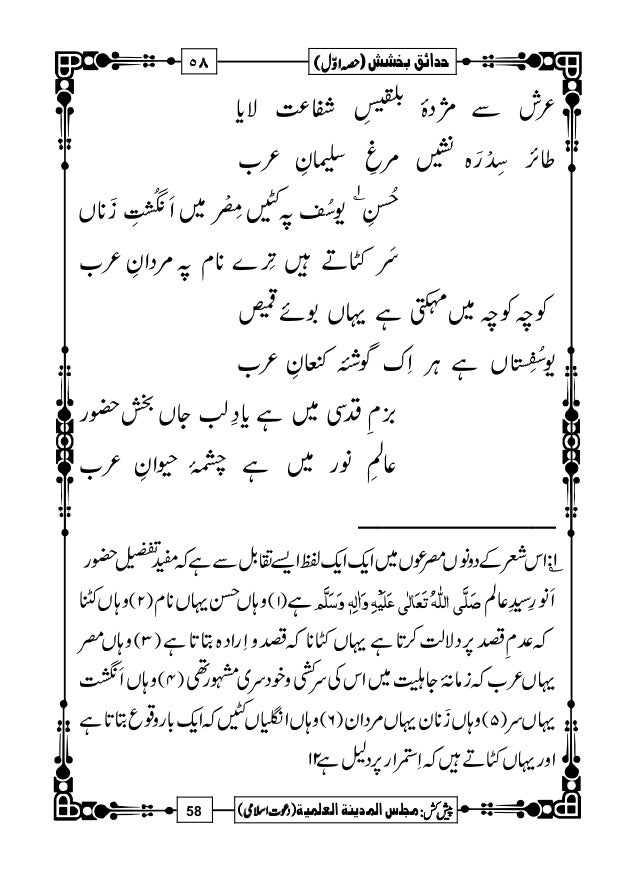 حدائق بخشش (حصہ اوّل)
۵۸
عرش سے مژدۂ بلقیسِ شفاعت لایا
طائر سِدْرَہ نشیں مرغِ سلیمانِ عرب
حُسنِ ۱؎ یوسُف پہ کٹیں مِصْر میں اَنگُشتِ زَناں
سَر کٹاتے ہیں تِرے نام پہ مردانِ عرب
کوچہ کوچہ میں مہکتی ہے یہاں بوئے قمیص
یوسُفِستاں ہے ہر اِک گوشئہ کنعانِ عرب
بزمِ قدسی میں ہے یادِ لب جاں بخش حضور
عالمِ نور میں ہے چشمۂ حیوانِ عرب
۱؎: اس شعر کے دونوں مصرعوں میں ایک ایک لفظ ایسے تقابل سے ہے کہ مفید تفضیل حضور
اَنور سیدِ عالم صَلَّی اللّٰہُ تَعَالٰی عَلَیْہِ وَاٰلِہٖ وَسَلَّم ہے (۱) وہاں حسن یہاں نام (۲) وہاں کٹنا
کہ عدمِ قصد پر دلالت کرتا ہے یہاں کٹانا کہ قصد و اِرادہ بتاتا ہے (۳) وہاں مصر
یہاں عرب کہ زمانۂ جاہلیت میں اس کی سرکشی و خود سری مشہور تھی (۴) وہاں اَنگشت
یہاں سر (۵) وہاں زَنان یہاں مردان (۶) وہاں انگلیاں کٹیں کہ ایک بار وقوع بتاتا ہے
اور یہاں کٹاتے ہیں کہ اِستمرار پر دلیل ہے ۱۲
پیش کش: مجلس المدینۃ العلمیۃ (دعوتِ اسلامی)
58